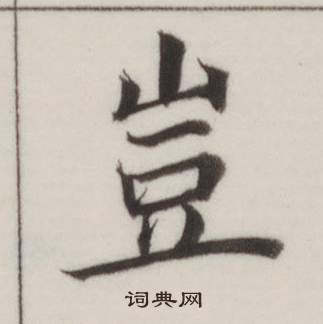 豈
词典网